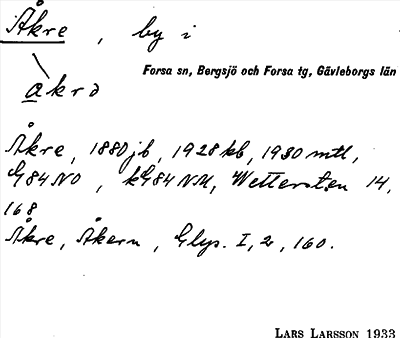 Åkre, by i
Forsa sn, Bergsjö och Forsa tg, Gävleborgs län
akrə
Åkre, 1880 jb, 1928 kb, 1930 mtl,
G84 NO, kG84 NM, Wettersten 14,
168
Åkre, Åkern, Glys. I, 2, 160.
LARS LARSSON 1933